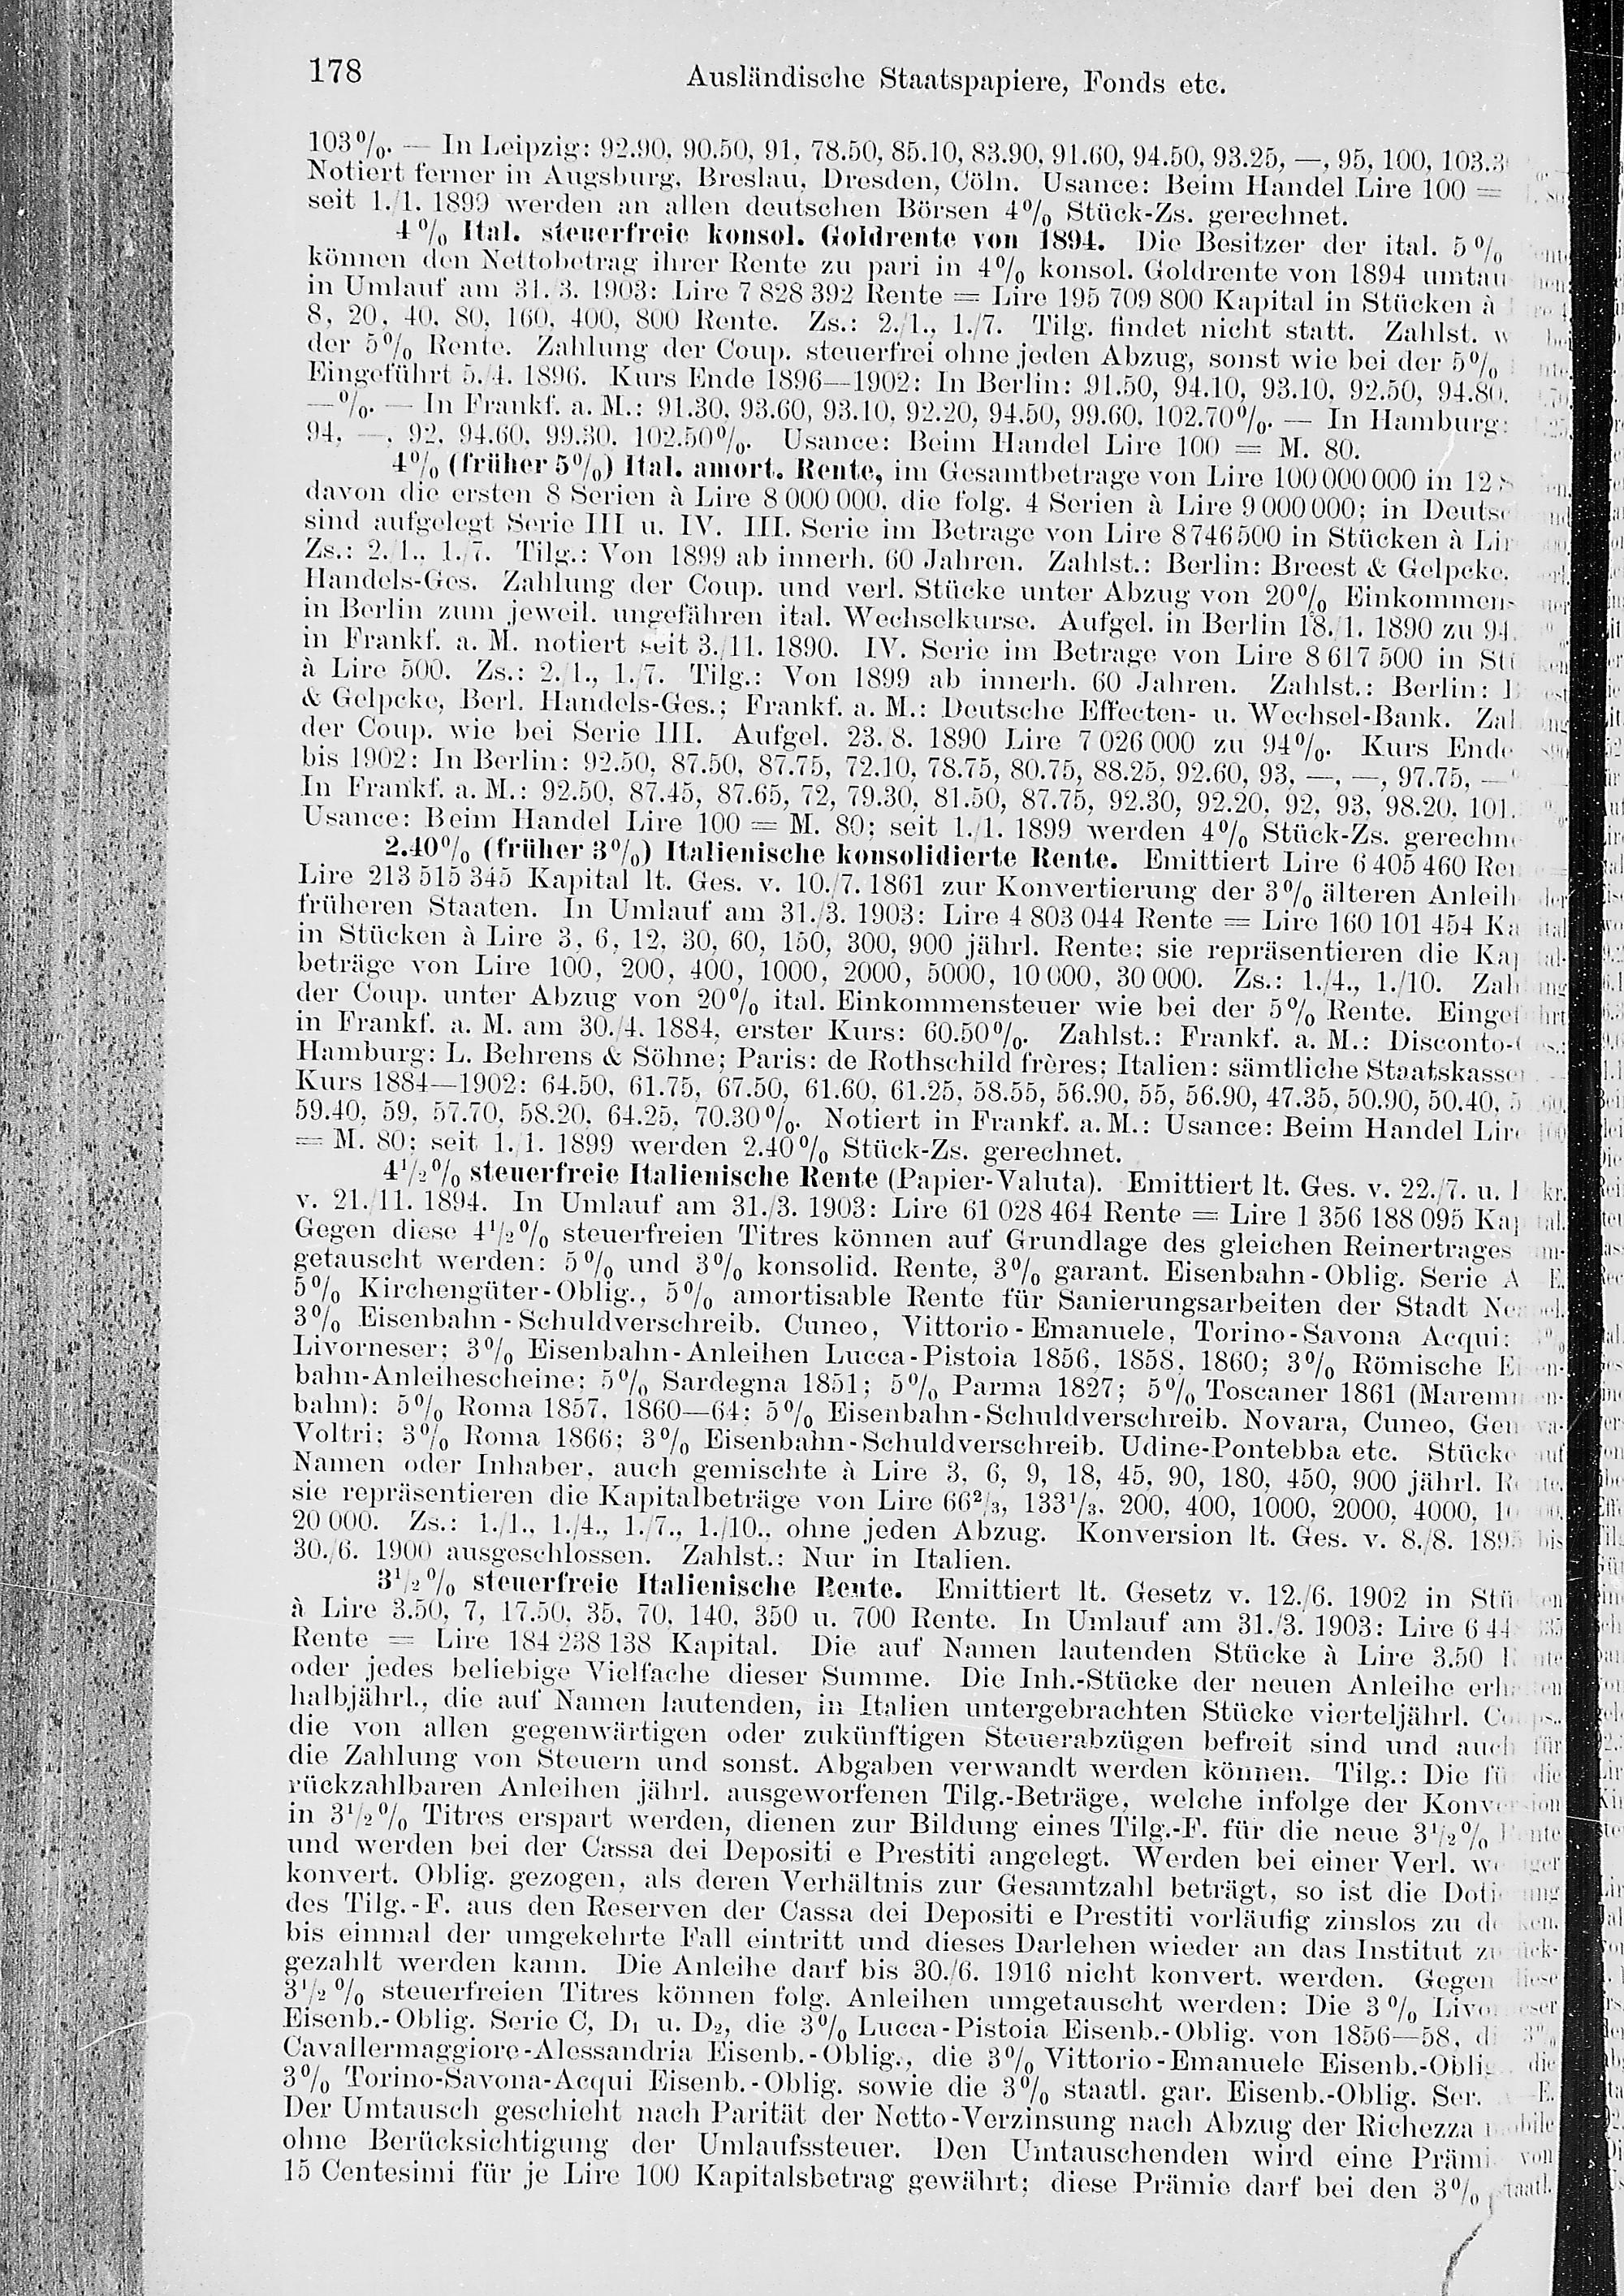 178 Ausländische Staatspapiere, Fonds etc.
103%. — In Leipzig: 92.90, 90.50, 91, 78.50, 85.10, 83.90, 91.60, 94.50, 93.25, —, 95, 100,
Notiert ferner in Augsburg, Breslau, Dresden, Cöln. Usance: Beim Handel Lire 100 =
seit 1./1. 1899 werden an allen deutschen Börsen 4% Stück-Zs. gerechnet.
4% Ital. steuerfreie konsol. Goldrente von 1894. Die Besitzer der ital. 5%
können den Nettobetrag ihrer Rente zu pari in 4% konsol. Goldrente von 1894
in Umlauf am 31./3. 1903: Lire 7 828 392 Rente = Lire 195 709 800 Kapital in Stücken à
8, 20, 40, 80, 160, 400, 800 Rente. Zs.: 2./1., 1./7. Tilg. findet nicht statt. Zahlst.
der 5% Rente. Zahlung der Coup. steuerfrei ohne jeden Abzug, sonst wie bei der 5%
Eingeführt 5./4. 1896. Kurs Ende 1896—1902: In Berlin: 91.50, 94.10, 93.10, 92.50, 94.80,
—%. — In Frankf. a. M.: 91.30, 93.60, 93.10, 92.20, 94.50, 99.60, 102.70%. — In Hamburg:
94, —, 92, 94.60, 99.30, 102.50%. Usance: Beim Handel Lire 100 = M. 80.
4% (früher 5%) Ital. amort. Rente, im Gesamtbetrage von Lire 100 000 000 in 12
davon die ersten 8 Serien à Lire 8 000 000, die folg. 4 Serien à Lire 9 000 000; in
sind aufgelegt Serie III u. IV. III. Serie im Betrage von Lire 8 746 500 in Stücken à
Zs.: 2./1., 1./7. Tilg.: Von 1899 ab innerh. 60 Jahren. Zahlst.: Berlin: Breest & Gelpcke,
Handels-Ges. Zahlung der Coup. und verl. Stücke unter Abzug von 20%
in Berlin zum jeweil. ungefähren ital. Wechselkurse. Aufgel. in Berlin 18./1. 1890 zu
in Frankf. a. M. notiert seit 3./11. 1890. IV. Serie im Betrage von Lire 8 617 500 in
à Lire 500. Zs.: 2./1., 1./7. Tilg.: Von 1899 ab innerh. 60 Jahren. Zahlst.: Berlin:
& Gelpcke, Berl. Handels-Ges.; Frankf. a. M.: Deutsche Effecten- u. Wechsel-Bank.
der Coup. wie bei Serie III. Aufgel. 23./8. 1890 Lire 7 026 000 zu 94%. Kurs Ende
bis 1902: In Berlin: 92.50, 87.50, 87.75, 72.10, 78.75, 80.75, 88.25, 92.60, 93, —, —, 97.75,
In Frankf. a. M.: 92.50, 87.45, 87.65, 72, 79.30, 81.50, 87.75, 92.30, 92.20, 92, 93, 98.20,
Usance: Beim Handel Lire 100 = M. 80; seit 1./1. 1899 werden 4% Stück-Zs.
2.40% (früher 3%) Italienische konsolidierte Rente. Emittiert Lire 6 405 460
Lire 213 515 345 Kapital lt. Ges. v. 10./7. 1861 zur Konvertierung der 3% älteren
früheren Staaten. In Umlauf am 31./3. 1903: Lire 4 803 044 Rente = Lire 160 101 454
in Stücken à Lire 3, 6, 12, 30, 60, 150, 300, 900 jährl. Rente; sie repräsentieren die
beträge von Lire 100, 200, 400, 1000, 2000, 5000, 10 000, 30 000. Zs.: 1./4., 1./10.
der Coup. unter Abzug von 20% ital. Einkommensteuer wie bei der 5% Rente.
in Frankf. a. M. am 30./4. 1884, erster Kurs: 60.50%. Zahlst.: Frankf. a. M.:
Hamburg: L. Behrens & Söhne; Paris: de Rothschild frères; Italien: sämtliche
Kurs 1884—1902: 64.50, 61.75, 67.50, 61.60, 61.25, 58.55, 56.90, 55, 56.90, 47.35, 50.90, 50.40,
59.40, 59, 57.70, 58.20, 64.25, 70.30%. Notiert in Frankf. a. M.: Usance: Beim Handel
= M. 80; seit 1./1. 1899 werden 2.40% Stück-Zs. gerechnet.
4½% steuerfreie Italienische Rente (Papier-Valuta). Emittiert lt. Ges. v. 22./7. u.
v. 21./11. 1894. In Umlauf am 31./3. 1903: Lire 61 028 464 Rente = Lire 1 356 188 095
Gegen diese 4½% steuerfreien Titres können auf Grundlage des gleichen Reinertrages
getauscht werden: 5% und 3% konsolid. Rente, 3% garant. Eisenbahn-Oblig. Serie A
5% Kirchengüter-Oblig., 5% amortisable Rente für Sanierungsarbeiten der Stadt
3% Eisenbahn-Schuldverschreib. Cuneo, Vittorio-Emanuele, Torino-Savona Acqui;
Livorneser; 3% Eisenbahn-Anleihen Lucca-Pistoia 1856, 1858, 1860; 3% Römische
bahn-Anleihescheine; 5% Sardegna 1851; 5% Parma 1827; 5% Toscaner 1861
bahn); 5% Roma 1857, 1860—64; 5% Eisenbahn-Schuldverschreib. Novara, Cuneo,
Voltri; 3% Roma 1866; 3% Eisenbahn-Schuldverschreib. Udine-Pontebba etc. Stücke auf
Namen oder Inhaber, auch gemischte à Lire 3, 6, 9, 18, 45, 90, 180, 450, 900 jährl.
sie repräsentieren die Kapitalbeträge von Lire 66⅔, 133⅓, 200, 400, 1000, 2000, 4000,
20 000. Zs.: 1./1., 1./4., 1./7., 1./10., ohne jeden Abzug. Konversion lt. Ges. v. 8./8. 1895 bis
30./6. 1900 ausgeschlossen. Zahlst.: Nur in Italien.
3½% steuerfreie Italienische Rente. Emittiert lt. Gesetz v. 12./6. 1902 in
à Lire 3.50, 7, 17.50, 35, 70, 140, 350 u. 700 Rente. In Umlauf am 31./3. 1903: Lire
Rente = Lire 184 238 138 Kapital. Die auf Namen lautenden Stücke à Lire 3.50
oder jedes beliebige Vielfache dieser Summe. Die Inh.-Stücke der neuen Anleihe
halbjährl., die auf Namen lautenden, in Italien untergebrachten Stücke vierteljährl.
die von allen gegenwärtigen oder zukünftigen Steuerabzügen befreit sind und auch für
die Zahlung von Steuern und sonst. Abgaben verwandt werden können. Tilg.: Die für die
rückzahlbaren Anleihen jährl. ausgeworfenen Tilg.-Beträge, welche infolge der Konversion
in 3½% Titres erspart werden, dienen zur Bildung eines Tilg.-F. für die neue 3½%
und werden bei der Cassa dei Depositi e Prestiti angelegt. Werden bei einer Verl.
konvert. Oblig. gezogen, als deren Verhältnis zur Gesamtzahl beträgt, so ist die
des Tilg.-F. aus den Reserven der Cassa dei Depositi e Prestiti vorläufig zinslos zu
bis einmal der umgekehrte Fall eintritt und dieses Darlehen wieder an das Institut
gezahlt werden kann. Die Anleihe darf bis 30./6. 1916 nicht konvert. werden. Gegen diese
3½% steuerfreien Titres können folg. Anleihen umgetauscht werden: Die 3%
Eisenb.-Oblig. Serie C, D₁ u. D₂, die 3% Lucca-Pistoia Eisenb.-Oblig. von 1856—58,
Cavallermaggiore-Alessandria Eisenb.-Oblig., die 3% Vittorio-Emanuele Eisenb.-Oblig. die
3% Torino-Savona-Acqui Eisenb.-Oblig. sowie die 3% staatl. gar. Eisenb.-Oblig. Ser.
Der Umtausch geschieht nach Parität der Netto-Verzinsung nach Abzug der Richezza mobile
ohne Berücksichtigung der Umlaufssteuer. Den Umtauschenden wird eine Prämie von
15 Centesimi für je Lire 100 Kapitalsbetrag gewährt; diese Prämie darf bei den 3% staatl.